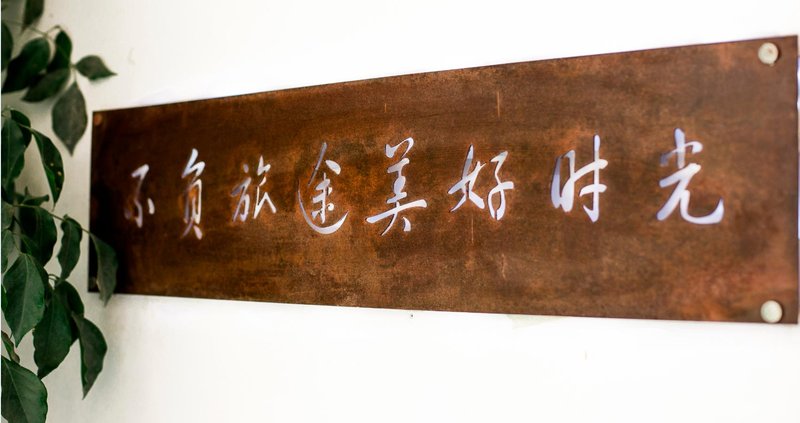 不负旅途美好时光